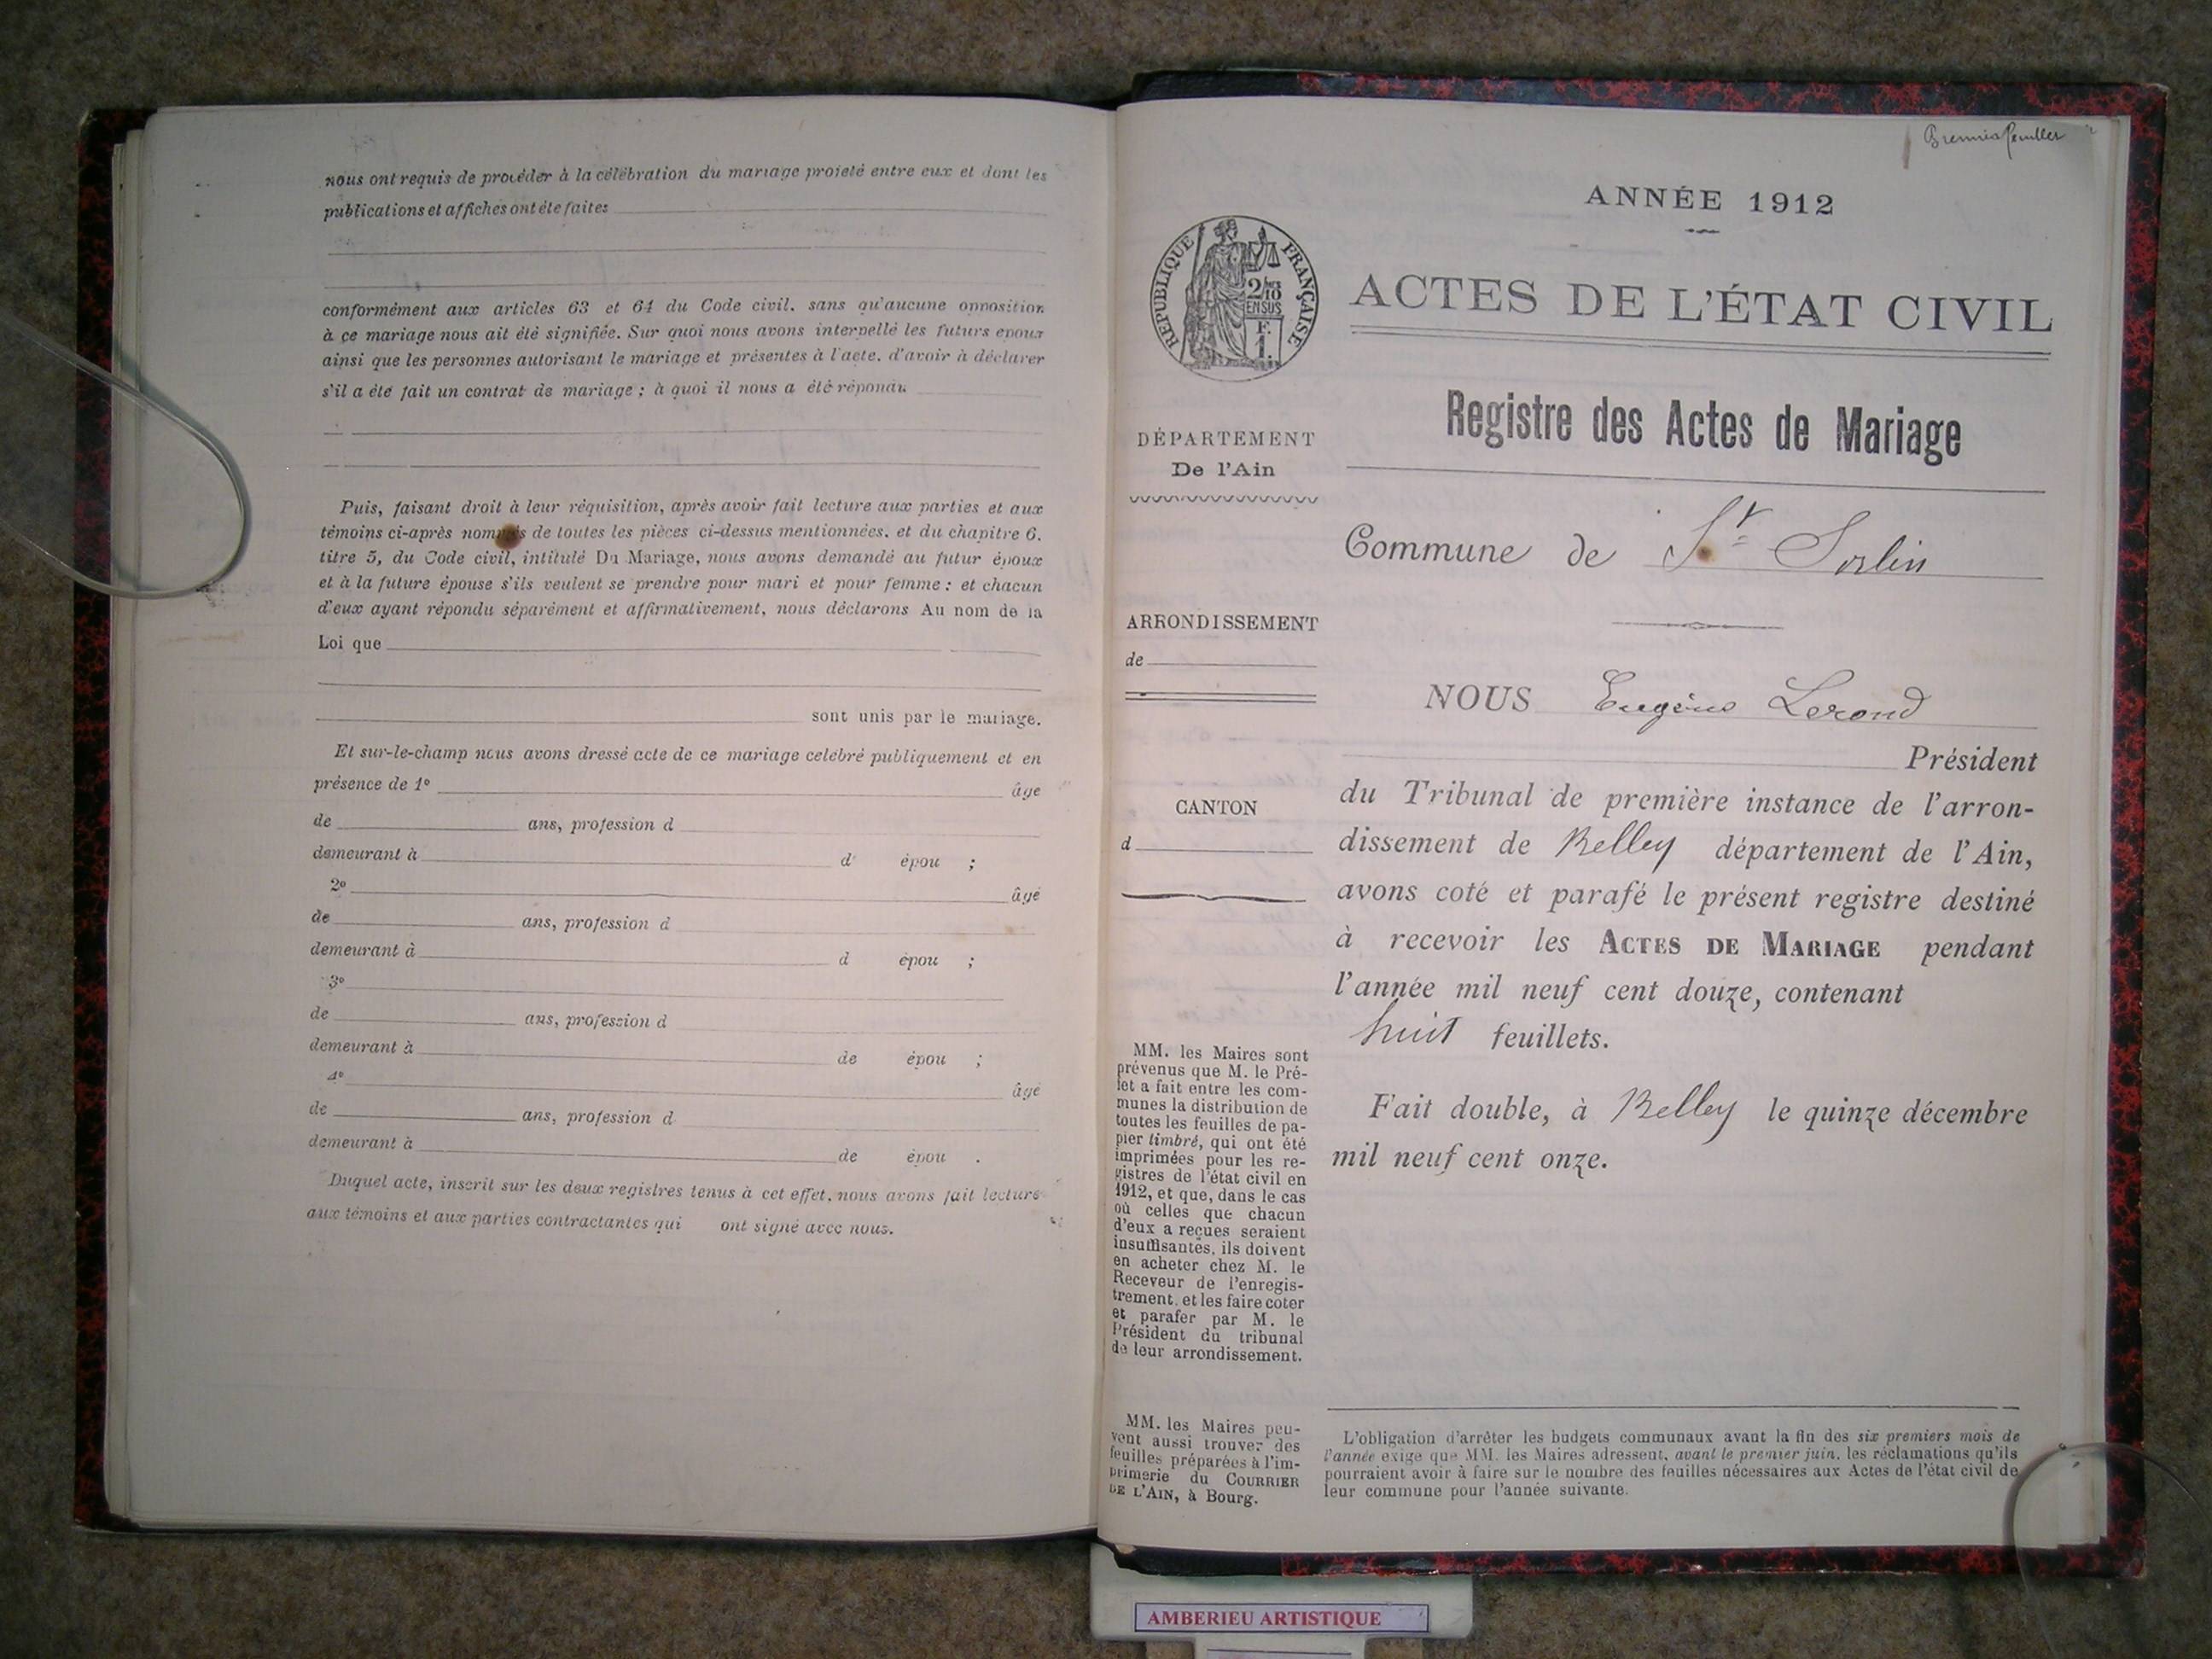 nous ont requis de procéder à la célébration du mariage projeté entre eux et dont les
publications et affiches ont été faites
conformément aux articles 63 et 64 du Code civil, sans qu'aucune opposition
à ce mariage nous ait été signifiée. Sur quoi nous avons interpellé les futurs époux
ainsi que les personnes autorisant le mariage et présentes à l'acte, d'avoir à déclarer
s'il a été fait un contrat de mariage ; à quoi il nous a été répondu
Puis, faisant droit à leur réquisition, après avoir fait lecture aux parties et aux
témoins ci-après nommés de toutes les pièces ci-dessus mentionnées, et du chapitre 6,
titre 5, du Code civil, intitulé Du Mariage, nous avons demandé au futur époux
et à la future épouse s'ils veulent se prendre pour mari et pour femme : et chacun
d'eux ayant répondu séparément et affirmativement, nous déclarons Au nom de la
Loi que
sont unis par le mariage.
Et sur-le-champ nous avons dressé acte de ce mariage célébré publiquement et en
présence de 1º âge
de ans, profession d
demeurant à d' épou ;
2º âgé
de ans, profession d
demeurant à d épou ;
3º
de ans, profession d
demeurant à de épou ;
4º âgé
de ans, profession d
demeurant à de épou .
Duquel acte, inscrit sur les deux registres tenus à cet effet, nous avons fait lecture
aux témoins et aux parties contractantes qui ont signé avec nous.
Premier feuillet
ANNÉE 1912
RÉPUBLIQUE FRANÇAISE
2/10
EN SUS
F.
1.
ACTES DE L'ÉTAT CIVIL
Registre des Actes de Mariage
DÉPARTEMENT
De l'Ain
Commune de St Sorlin
ARRONDISSEMENT
de
NOUS Eugène Lerond
Président
du Tribunal de première instance de l'arron-
dissement de Belley département de l'Ain,
avons coté et parafé le présent registre destiné
à recevoir les ACTES DE MARIAGE pendant
l'année mil neuf cent douze, contenant
huit feuillets.
Fait double, à Belley le quinze décembre
mil neuf cent onze.
CANTON
d
MM. les Maires sont
prévenus que M. le Pré-
fet a fait entre les com-
munes la distribution de
toutes les feuilles de pa-
pier timbré, qui ont été
imprimées pour les re-
gistres de l'état civil en
1912, et que, dans le cas
où celles que chacun
d'eux a reçues seraient
insuffisantes, ils doivent
en acheter chez M. le
Receveur de l'enregis-
trement, et les faire coter
et parafer par M. le
Président du tribunal
de leur arrondissement.
MM. les Maires peu-
vent aussi trouver des
feuilles préparées à l'im-
primerie du COURRIER
DE L'AIN, à Bourg.
L'obligation d'arrêter les budgets communaux avant la fin des six premiers mois de
l'année exige que MM. les Maires adressent, avant le premier juin, les réclamations qu'ils
pourraient avoir à faire sur le nombre des feuilles nécessaires aux Actes de l'état civil de
leur commune pour l'année suivante.
AMBERIEU ARTISTIQUE